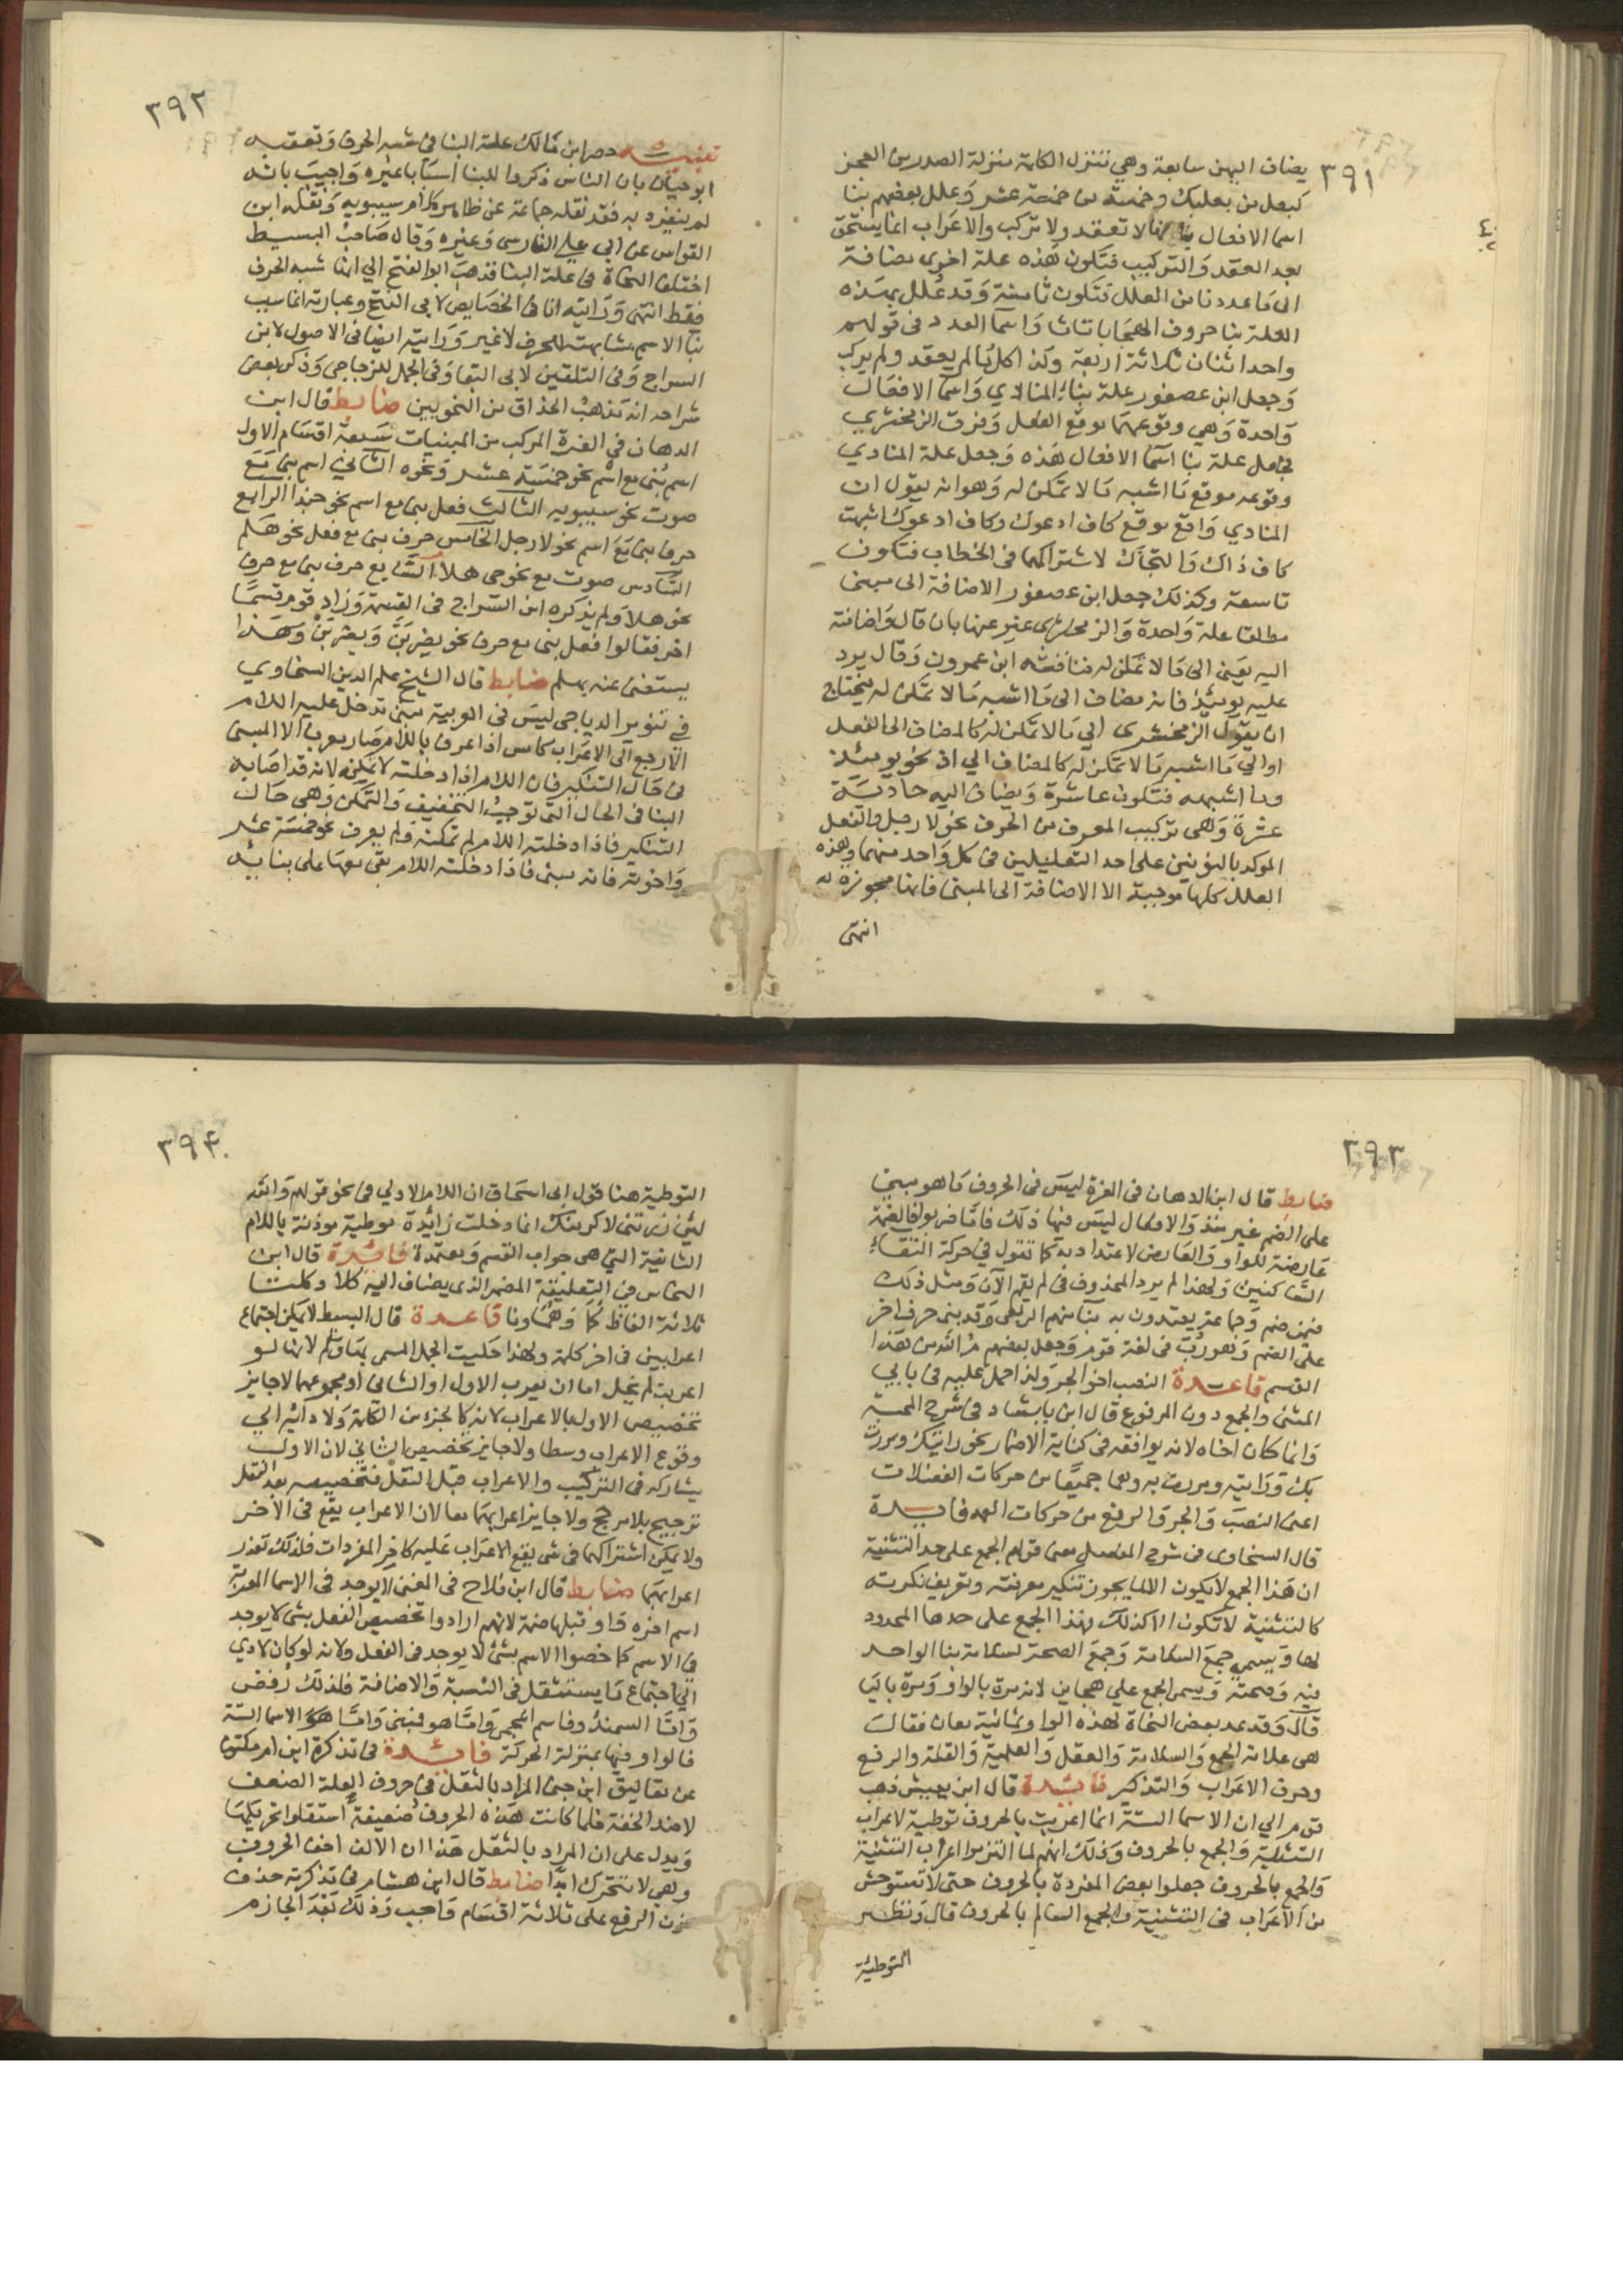 ٣٩١
يضاف اليهن سابعة وهي تنزل الكلمة منزلة الصدر من العجز
كبعل من بعلبك وخمسة من خمسة عشر وعلل بعضهم بنا
اسما الافعال بانها لا تعقد ولا تركب والاعراب انما يستحق
بعد العقد والتركيب فتكون هذه علة اخرى مضافة
الى ما عددنا من العلل فتكون ثامنة وقد علل بهذه
العلة بنا حروف الهجا با تا ثا واسما العدد في قولهم
واحد اثنان ثلاثة اربعة وكذا كل ما لم يعقد ولم يركب
وجعل ابن عصفور علة بناء المنادي واسما الافعال
واحدة وهي وقوعهما موقع الفعل وفرق الزمخشري
فجعل علة بنا اسما الافعال هذه وجعل علة المنادي
وقوعه موقع ما اشبه ما لا تمكن له وهو انه يقول ان
المنادي واقع موقع كاف ادعوك وكاف ادعوك اشبهت
كاف ذاك والنجاك لاشتراكهما في الخطاب فتكون
تاسعة وكذلك جعل ابن عصفور الاضافة الى مبنى
مطلقا علة واحدة والزمخشري عبر عنها بان قال واضافته
اليه يعني الى ما لا تمكن له فناقشه ابن عمرون وقال يرد
عليه يومئذ فانه مضاف الى ما اشبه ما لا تمكن له فيحتاج
ان يقول الزمخشري الي ما لا تمكن له كالمضاف الى الفعل
او الي ما اشبه ما لا تمكن له كالمضاف الي اذ نحو يومئذ
وما اشبهه فتكون عاشرة ويضاف اليه حادية
عشرة وهي تركيب المعرف من الحرف نحو لا رجل والفعل
الموكد بالنونين على احد التعليلين في كل واحد منهما وهذه
العلل كلها موجبة الا الاضافة الى المبنى فانها مجوزة له
انتهى
٣٩٢
تنبيه حصر ابن مالك علة البنا في شبه الحرف وتعقبه
ابو حيان بان الناس ذكروا للبنا اسبابا غيره واجيب بانه
لم ينفرد به فقد نقله جماعة عن ظاهر كلام سيبويه ونقله ابن
القواس عن ابي علي الفارسي وغيره وقال صاحب البسيط
اختلف النحاة في علة البنا فذهب ابو الفتح الي انها شبه الحرف
فقط انتهى ورايته انا في الخصايص لابي الفتح وعبارته انما سبب
بنا الاسم مشابهته للحرف لا غير ورايته ايضا في الاصول لابن
السراج وفي التلقين لابي البقا وفي الجمل للزجاجي وذكر بعض
شراحه انه مذهب الحذاق من النحويين ضابط قال ابن
الدهان في الغرة المركب من المبنيات سبعة اقسام الاول
اسم بني مع اسم نحو خمسة عشر ونحوه الثاني اسم بني مع
صوت نحو سيبويه الثالث فعل بني مع اسم نحو حبذا الرابع
حرف بني مع اسم نحو لا رجل الخامس حرف بني مع فعل نحو هلم
السادس صوت مع نحو حي هلا السابع حرف بني مع حرف
نحو هلا ولم يذكره ابن السراج في القسمة وزاد قوم قسما
اخر فقالوا فعل بني مع حرف نحو يضربَنّ ويضربَنْ وهذا
يستغنى عنه بهلم ضابط قال الشيخ علم الدين السخاوي
في تنوير الدياجي ليس في العربية مبني تدخل عليه اللام
الا رجع الى الاعراب كامس اذا عرف باللام صار معربا الا المبنى
في حال التنكير فان اللام اذا دخلته لا تمكنه لانه قد اصابه
البنا في الحال التي توجب التخفيف والتمكن وهي حال
التنكير فاذا دخلته اللام لم تمكنه ولم يعرف نحو خمسة عشر
واخوته فانه مبنى فاذا دخلته اللام بقي معها على بنائه
٣٩٣
ضابط قال ابن الدهان في الغرة ليس في الحروف ما هو مبني
على الضم غير منذ والافعال ليس فيها ذلك فاما ضربوا فالضمة
عارضة للواو والعارض لا اعتداد به كما تقول في حركة التقاء
الساكنين ولهذا لم يرد المحذوف في لم يقم الآن ومثل ذلك
فيمن ضم وجماعة يعتدون به بنا منهم الربعى وقد بنى حرف اخر
على الضم وهو رب في لغة قوم وجعل بعضهم مُ الله من هذا
القسم قاعدة النصب اخو الجر ولذا حمل عليه في بابي
المثنى والجمع دون المرفوع قال ابن بابشاد في شرح المحتسب
وانما كان اخاه لانه يوافقه في كناية الاضمار نحو رايتك ومررت
بك ورايته ومررت به وهما جميعا من حركات الفضلات
اعنى النصب والجر والرفع من حركات العمد فايدة
قال السخاوى في شرح المفصل معنى قولهم الجمع على حد التثنية
ان هذا الجمع لا يكون الا لما يجوز تنكير معرفته وتعريف نكرته
كالتثنية لا تكون الا كذلك فهذا الجمع على حدها المحدود
لها ويسمى جمع السلامة وجمع الصحة لسلامة بنا الواحد
فيه وصحته ويسمى الجمع علي هجاين لانه مرة بالواو ومرة باليا
قال وقد عد بعض النحاة لهذه الواو ثمانية معان فقال
هى علامة الجمع والسلامة والعقل والعلمية والقلة والرفع
وحرف الاعراب والتذكير فائدة قال ابن يعيش ذهب
قوم الي ان الاسما الستة انما اعربت بالحروف توطية لاعراب
التثنية والجمع بالحروف وذلك انهم لما التزموا اعراب التثنية
والجمع بالحروف جعلوا بعض المفردة بالحروف حتى لا تستوحش
من الاعراب في التثنية والجمع السالم بالحروف قال ونظير
التوطية
٣٩٤
التوطية هنا قول ابي اسحاق ان اللام الاولي في نحو قولهم والله
لئن زرتني لاكرمنك انما دخلت زائدة موطية موذنة باللام
الثانية التي هي جواب القسم ومعتمدة فائدة قال ابن
النحاس في التعليقة المضمر الذي يضاف اليه كلا وكلتا
ثلاثة الفاظ كما وهما ونا قاعدة قال البسيط لا يمكن اجتماع
اعرابين في اخر كلمة ولهذا حكيت الجمل المسمى بها ولم لانها لو
اعربت لم يخل اما ان يعرب الاول او الثاني او مجموعهما لا جايز
تخصيص الاول بالاعراب لانه كالجزء من الكلمة ولادائه الي
وقوع الاعراب وسطا ولا جايز تخصيص الثاني لان الاول
يشاركه في التركيب والاعراب قبل النقل فتخصيصه بعد النقل
ترجيح بلا مرجح ولا جايز اعرابهما معا لان الاعراب يقع في الاخر
ولا يمكن اشتراكهما في شي يقع الاعراب عليه كاخر المفردات فلذلك تعذر
اعرابهما ضابط قال ابن فلاح في المغنى لا يوجد في الاسما المعربة
اسم اخره واو قبلها ضمة لانهم ارادوا تخصيص الفعل بشي لا يوجد
في الاسم كما خصوا الاسم بشئ لا يوجد في الفعل ولانه لو كان لادي
الي اجتماع ما يستثقل في النسبة والاضافة فلذلك رفض
واما السمندو فاسم اعجمي واما هو فمبنى واما الاسما الستة
فالواو فيها بمنزلة الحركة فائدة في تذكرة ابن ام مكتوم
عن تعاليق ابن جني المراد بالثقل في حروف العلة الضعف
لا ضد الخفة فلما كانت هذه الحروف ضعيفة استثقلوا تحريكها
ويدل على ان المراد بالثقل هذا ان الالف اخف الحروف
وهي لا تتحرك ابدا ضابط قال ابن هشام في تذكرته حذف
نون الرفع على ثلاثة اقسام واجب وذلك بعد الجازم